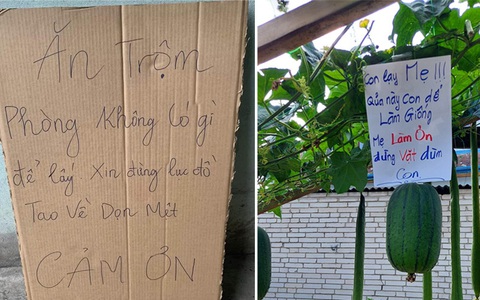 Ăn Trộm
Phòng Không Có gì
để lấy Xin đừng lục đồ
Tao Về Dọn Mệt
CẢM ƠN
Con lạy Mẹ !!!
Qủa này Con để
Làm Giống
Mẹ Làm Ơn
đừng Vặt dùm
Con